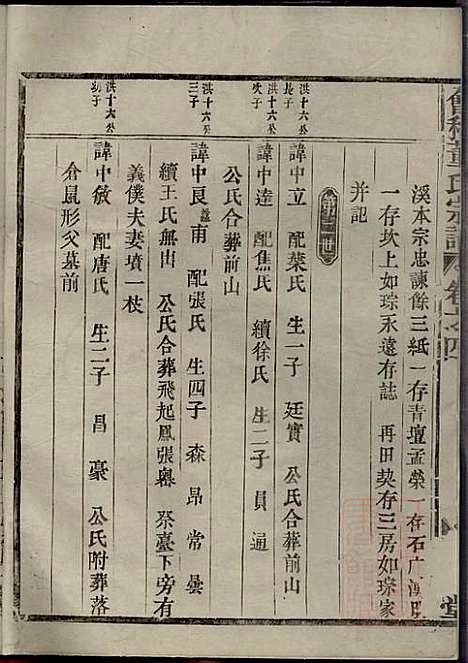 溪本宗忠諫餘三紙一存青壇孟榮一存石广潭
一存坎上如琮永遠存誌 再田契存三房如琮家
并記
第二世
洪十六公長子
諱中立 配葉氏 生一子 廷實 公氏合葬前山
洪十六公次子
諱中逵 配焦氏 續徐氏 生二子 員 通
公氏合葬前山
洪十六公三子
諱中良 號南 配張氏 生四子 森 昂 常 曇
續王氏無出 公氏合葬飛起鳳張粵 祭臺下旁有
義僕夫妻墳一枝
洪十六公幼子
諱中敘 配唐氏 生二子 昌 豪 公氏附葬落
倉鼠形父墓前
董氏宗譜
堂